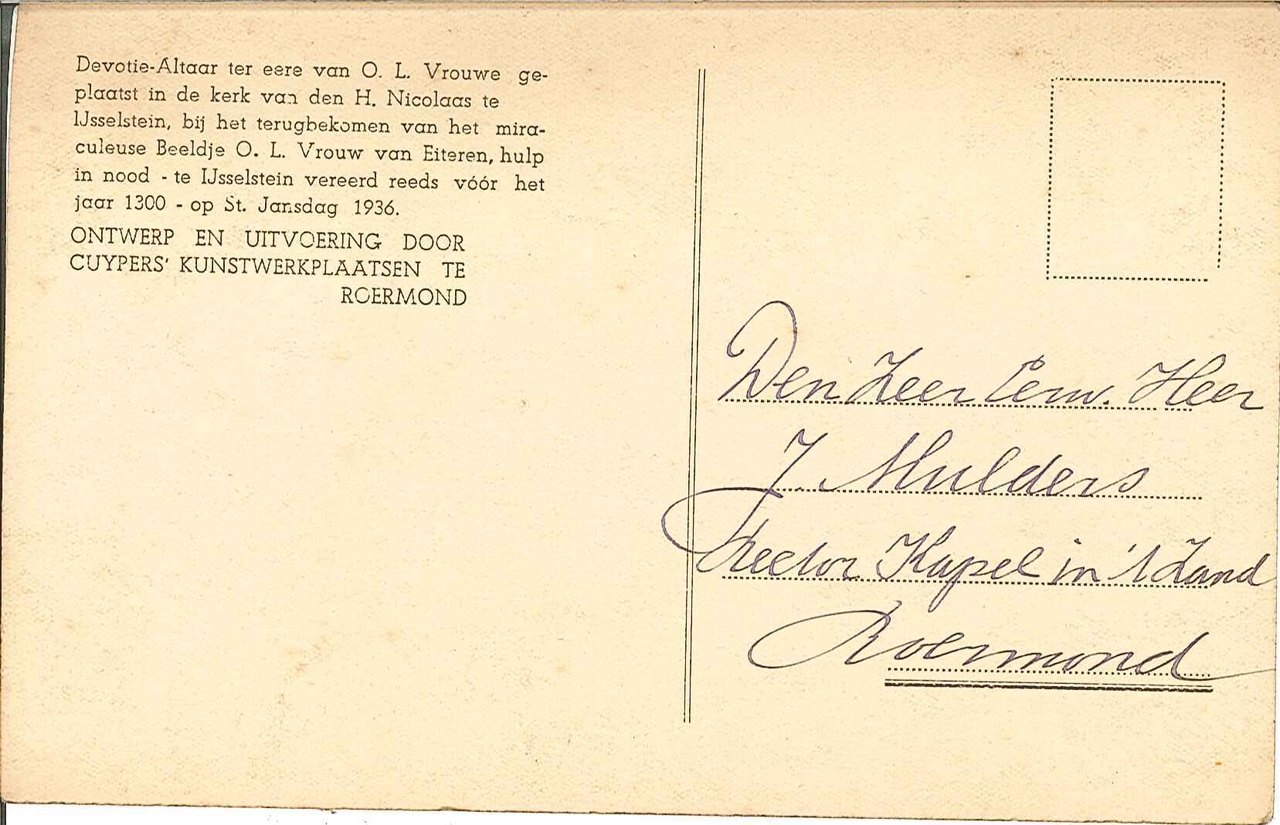 Devotie-Altaar ter eere van O. L. Vrouwe ge-
plaatst in de kerk van den H. Nicolaas te
IJsselstein, bij het terugbekomen van het mira-
culeuse Beeldje O. L. Vrouw van Eiteren, hulp
in nood - te IJsselstein vereerd reeds vóór het
jaar 1300 - op St. Jansdag 1936.
ONTWERP EN UITVOERING DOOR
CUYPERS' KUNSTWERKPLAATSEN TE
ROERMOND
Den Zeer Eerw. Heer
J. Mulders
Rector Kapel in 't Zand
Roermond